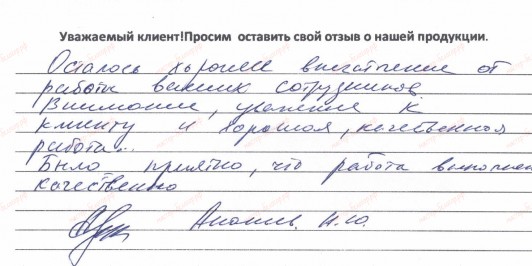 Уважаемый клиент!Просим оставить свой отзыв о нашей продукции.
Осталось хорошее впечатление от
работы ваших сотрудников
Внимание, уважение к
клиенту и хорошая, качественная
работа..
Было приятно, что работа выполнен
качественно